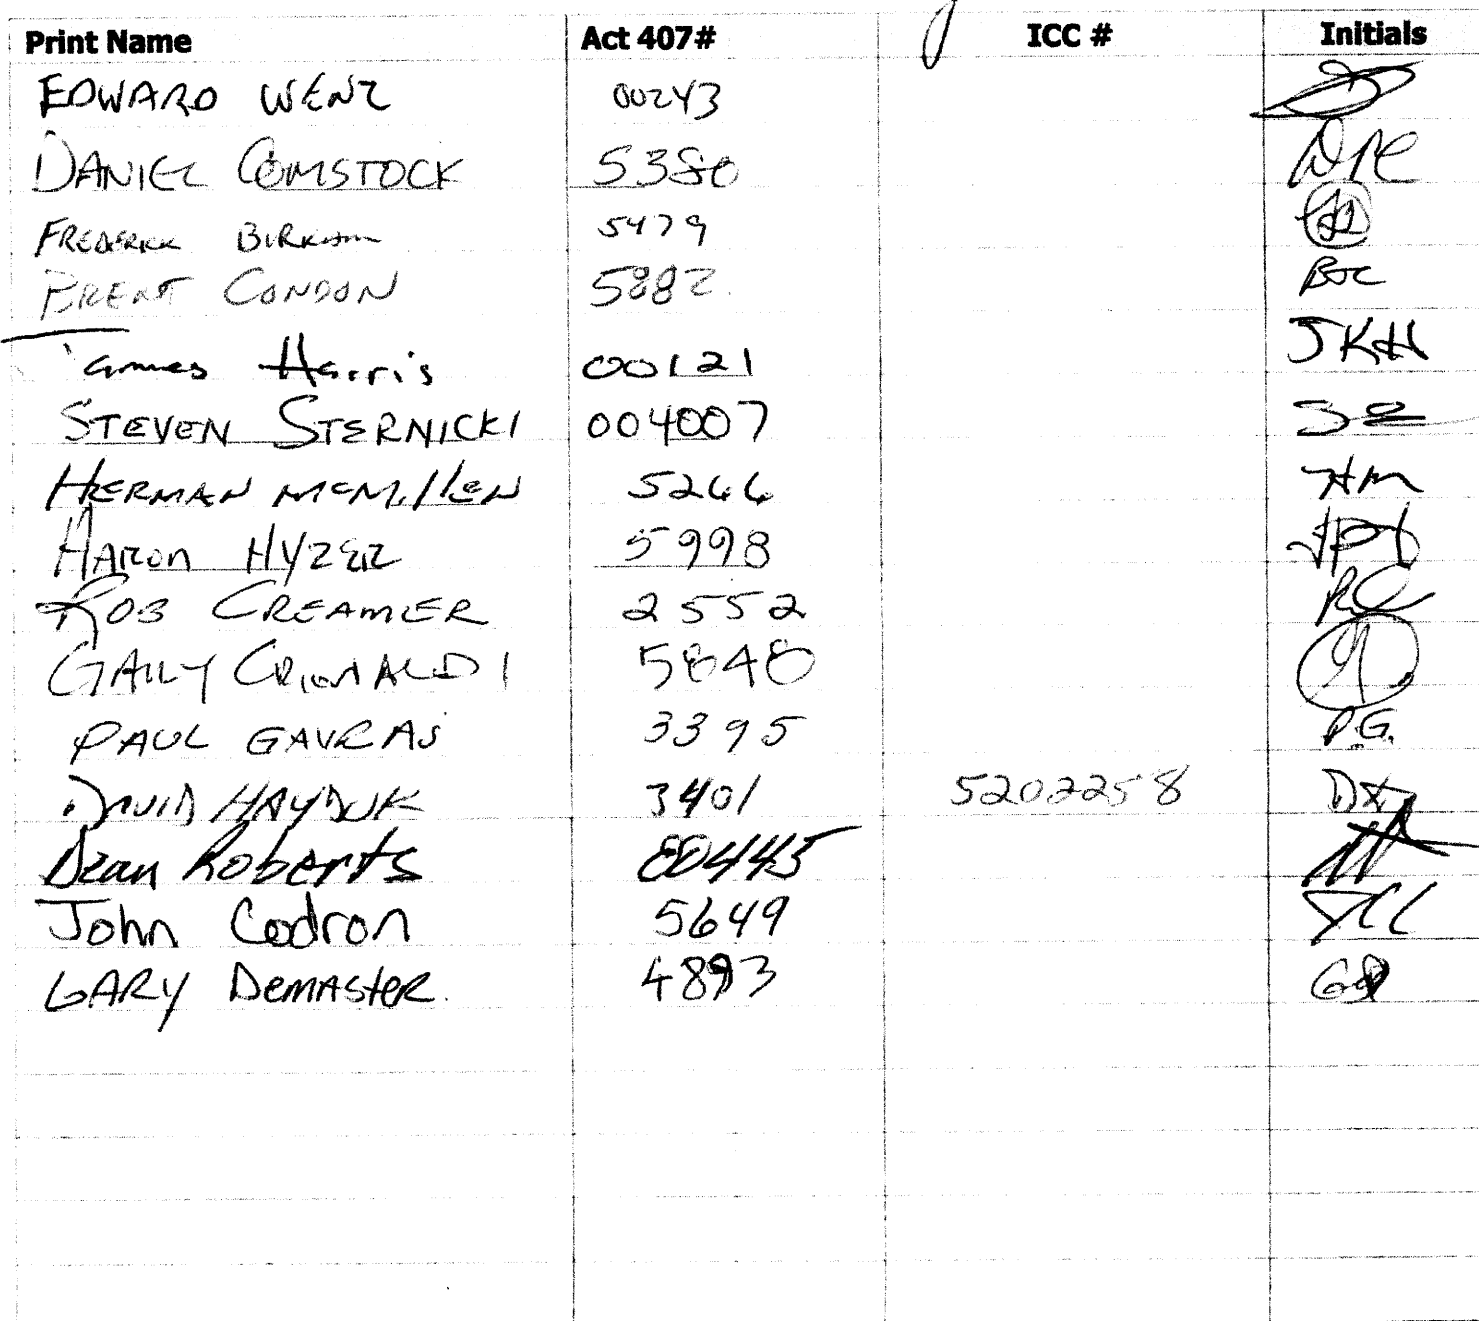 Print Name Act 407# ICC # Initials
EDWARD WENZ 00243
DANIEL COMSTOCK 5380 DPC
FREDERICK BURKHAM 5479
BRENT CONDON 5882 BJC
James Harris 00121 JKH
STEVEN STERNICKI 004007 SS
HERMAN MCMILLEN 5266 HM
AARON HYZER 5998
ROB CREAMER 2552 RC
GARY GRIMALDI 5848
PAUL GAVRAS 3395 P.G.
DAVID HAYDUK 3401 5202258 DH
Dean Roberts 00445
John Codron 5649
GARY DEMASTER 4893 GD